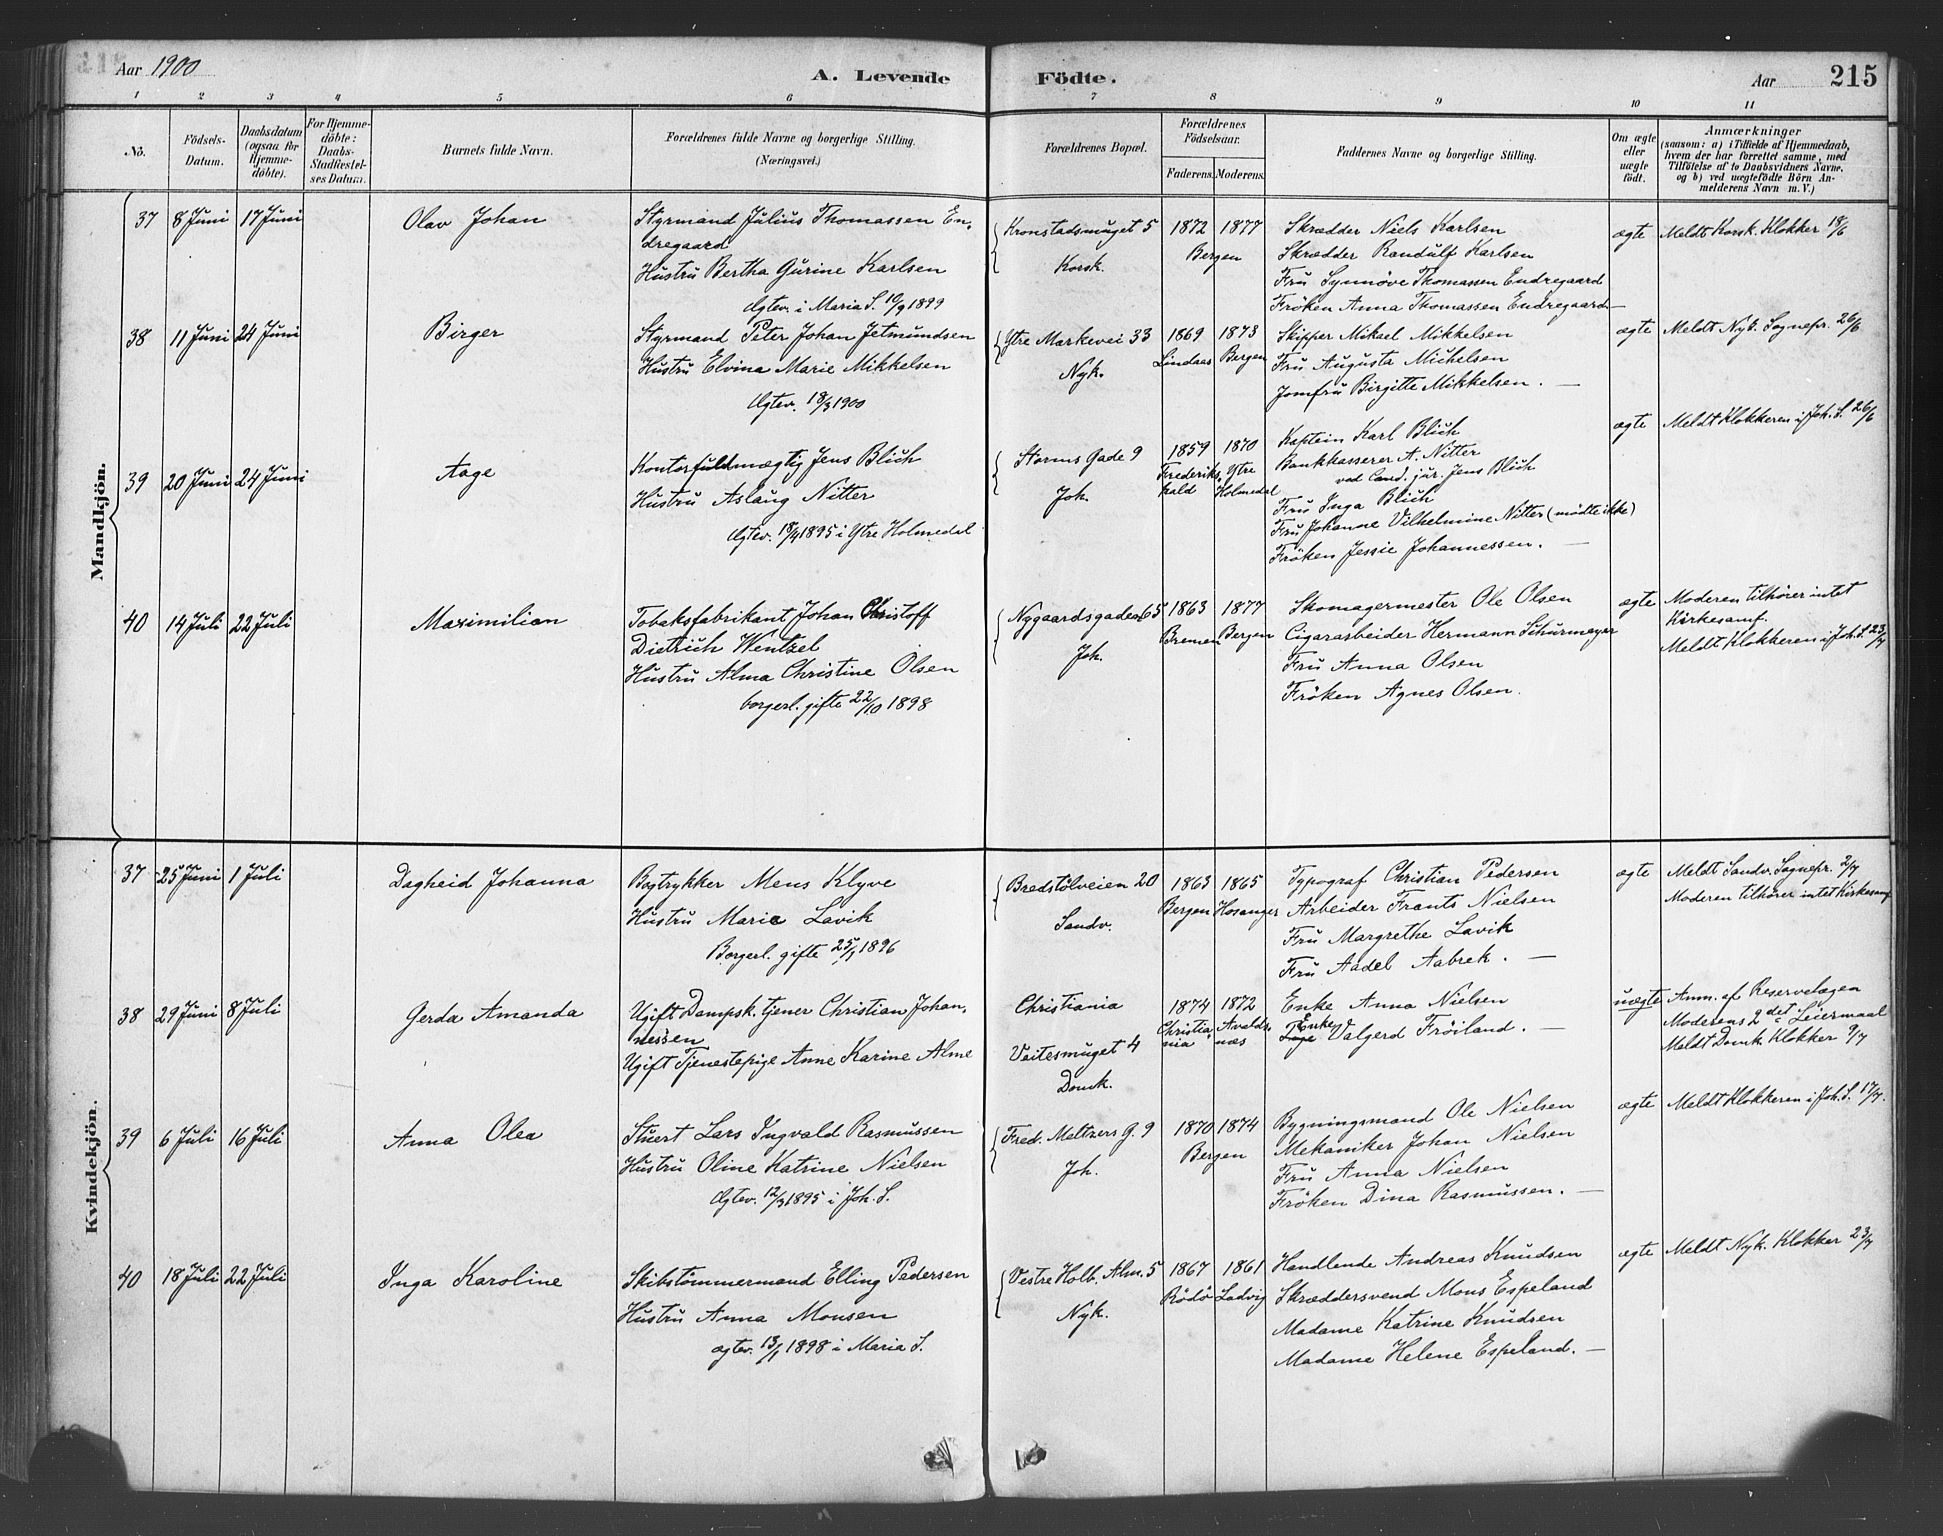 Aar 1900
A. Levende Födte.
Aar 215
1 2 3 4 5 6 7 8 9 10 11
No.
Födsels-Datum.
Daabsdatum (ogsaa for Hjemme-döbte).
For Hjemme-döbte: Daabs-Stadfæstel-ses Datum.
Barnets fulde Navn.
Forældrenes fulde Navne og borgerlige Stilling.
(Næringsvei.)
Forældrenes Bopæl.
Forældrenes Födselsaar.
Faderens. Moderens.
Faddernes Navne og borgerlige Stilling.
Om ægte eller uægte födt.
Anmærkninger
(saasom: a) i Tilfælde af Hjemmedaab, hvem der har forrettet samme, med Tilföielse af to Daabsvidners Navne, og b) ved uægtefödte Börn An-melderens Navn m. V.)
Mandkjön.
37 8 Juni 17 Juni Olav Johan
Styrmand Julius Thomassen En-
dregaard
Hustru Bertha Gurine Karlsen
Ægtev. i Maria S. 10/9 1899
Kronstadsmuget 5
Korsk.
1872 1877
Bergen
Skrædder Niels Karlsen
Skrædder Randulf Karlsen
Fru Synnöve Thomassen Endregaard
Fröken Anna Thomassen Endregaard
ægte
Meldt Korsk. Klokker 18/6
38 11 Juni 24 Juni Birger
Styrmand Peter Johan Jetmundsen
Hustru Elvina Marie Mikkelsen
Ægtev. 18/3 1900
Ytre Markevei 33
Nyk.
1869 1873
Lindaas Bergen
Skipper Mikael Mikkelsen
Fru Augusta Michelsen
Jomfru Birgitte Mikkelsen. —
ægte
Meldt Nyk. Sognepr. 26/6
39 20 Juni 24 Juni Aage
Kontorfuldmægtig Jens Blich
Hustru Aslaug Nitter
Ægtev. 18/4 1895 i Ytre Holmedal
Storms Gade 9
Joh.
1859 1870
Frederiks- Ytre
hald Holmedal
Kaptein Karl Blich
Bankkasserer A. Nitter
ved Cand. jur. Jens Blich
Fru Inga Blich
Fru Johanne Vilhelmine Nitter (mödte ikke)
Fröken Jessie Johannessen. —
ægte
Meldt Klokkeren i Joh. S. 26/6
40 14 Juli 22 Juli Maximilian
Tobaksfabrikant Johan Christoff
Dietrich Wentzel
Hustru Alma Christine Olsen
borgerl. gifte 22/10 1898
Nygaardsgaden 65
Joh.
1863 1877
Bremen Bergen
Skomagermester Ole Olsen
Cigararbeider Hermann Schurmeyer
Fru Anna Olsen
Fröken Agnes Olsen.
ægte
Moderen tilhörer intet
Kirkesamf.
Meldt Klokkeren i Joh. S. 23/7
Kvindekjön.
37 25 Juni 1 Juli Dagheid Johanna
Bogtrykker Mens Klyve
Hustru Marie Lavik
Borgerl. gifte 25/1 1896
Bredstölveien 20
Sandv.
1863 1865
Bergen Hosanger
Typograf Christian Pedersen
Arbeider Frants Nielsen
Fru Margrethe Lavik
Fru Aadel Aabrek. —
ægte
Meldt Sandv. Sognepr. 2/7
Moderen tilhörer intet Kirkesamf
38 29 Juni 8 Juli Gerda Amanda
Ugift Dampsk. tjener Christian Johan-
nessen
Ugift Tjenestepige Anne Karine Alme
Christiania
Veitesmuget 4
Domk.
1874 1872
Christia- Avalds-
nia næs
Enke Anna Nielsen
Enke Valgerd Fröiland. —
uægte
Anm. af Reservelægen
Moderens 2det Leiermaal
Meldt Domk. Klokker 9/7
39 6 Juli 16 Juli Anna Olea
Stuert Lars Ingvald Rasmussen
Hustru Oline Katrine Nielsen
Ægtev. 12/3 1895 i Joh. S.
Fred. Meltzers G. 9
Joh.
1870 1874
Bergen
Bygningsmand Ole Nielsen
Mekaniker Johan Nielsen
Fru Anna Nielsen
Fröken Dina Rasmussen. —
ægte
Meldt Klokkeren i Joh. S. 17/7.
40 18 Juli 22 Juli Inga Karoline
Skibstömmermand Elling Pedersen
Hustru Anna Monsen
ægtev. 13/1 1898 i Maria S.
Vestre Holb. Alm. 5
Nyk.
1867 1861
Rödö Ladvig
Handlende Andreas Knudsen
Skræddersvend Mons Espeland
Madame Katrine Knudsen
Madame Helene Espeland. —
ægte
Meldt Nyk. Klokker 23/7